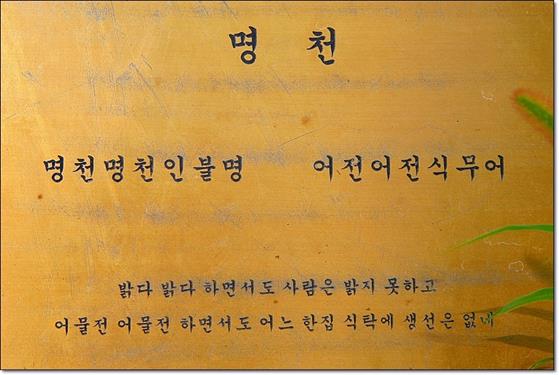 명 천
명천명천인불명 어전어전식무어
밝다 밝다 하면서도 사람은 밝지 못하고
어물전 어물전 하면서도 어느 한집 식탁에 생선은 없네